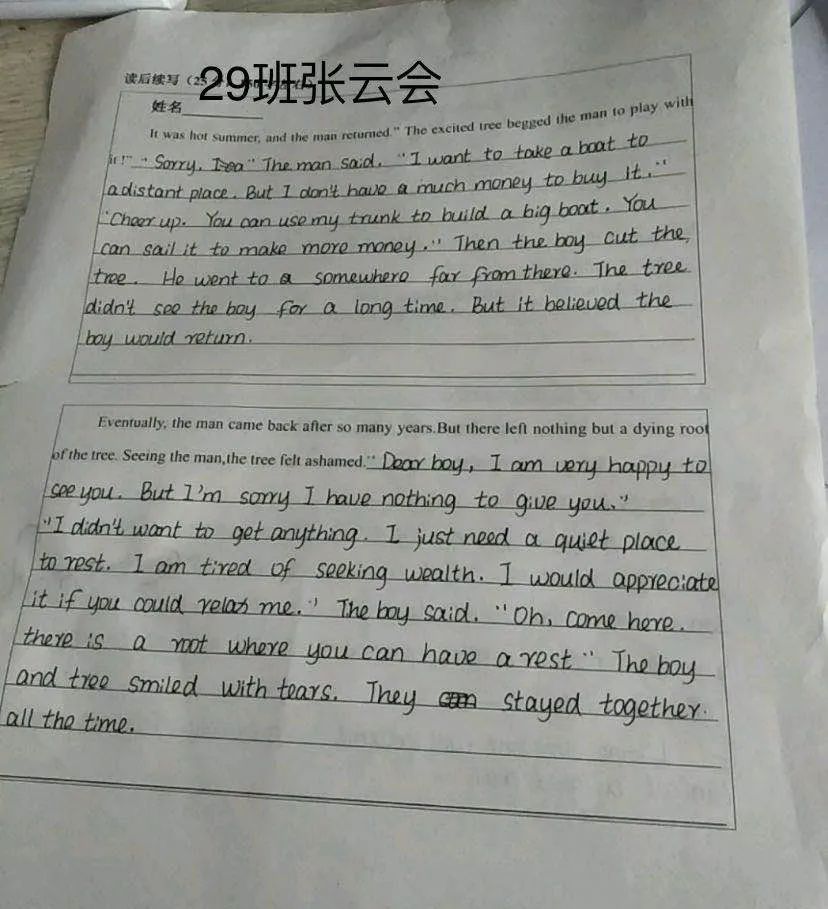 读后续写（25
29班张云会
姓名
It was hot summer, and the man returned." The excited tree begged the man to play with
it!" " Sorry, " The man said. "I want to take a boat to
a distant place. But I don't have a much money to buy it."
"Cheer up. You can use my trunk to build a big boat. You
can sail it to make more money." Then the boy cut the
tree. He went to a somewhere far from there. The tree
didn't see the boy for a long time. But it believed the
boy would return.
Eventually, the man came back after so many years.But there left nothing but a dying root
of the tree. Seeing the man,the tree felt ashamed." Dear boy, I am very happy to
see you. But I'm sorry I have nothing to give you."
"I didn't want to get anything. I just need a quiet place
to rest. I am tired of seeking wealth. I would appreciate
it if you could relax me." The boy said. "Oh, come here.
there is a root where you can have a rest" The boy
and tree smiled with tears. They stayed together.
all the time.